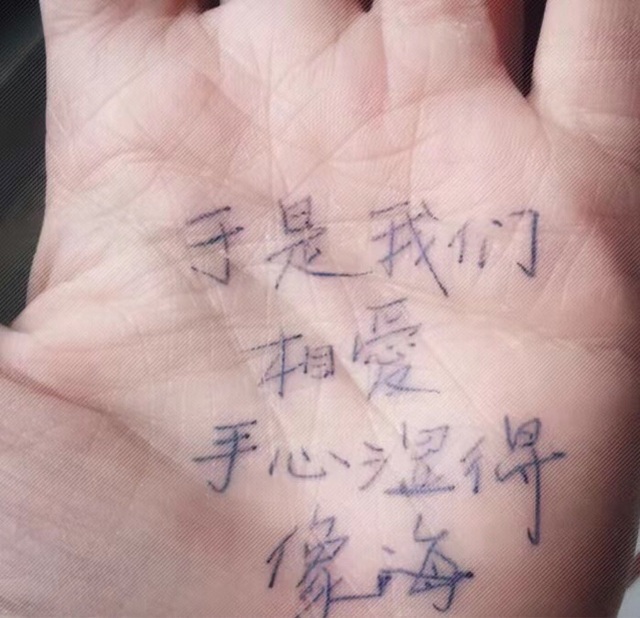 于是我们
相愛
手心湿得
像海